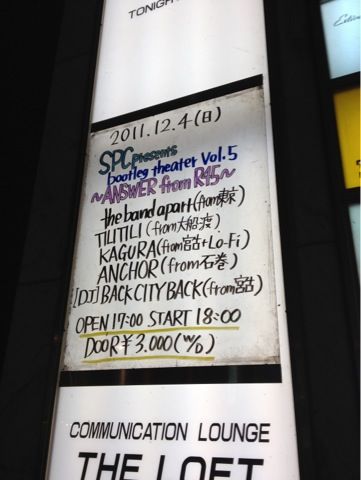 TONIGHT
2011.12.4(日)
SPC presents
bootleg theater Vol.5
~ANSWER from R45~
the band apart (from東京)
TILITILI (from大船渡)
KAGURA (from宮古+Lo-Fi)
ANCHOR (from石巻)
[DJ] BACK CITY BACK (from宮古)
OPEN 17:00 START 18:00
DOOR ¥3,000 (w/D)
COMMUNICATION LOUNGE
THE LOFT